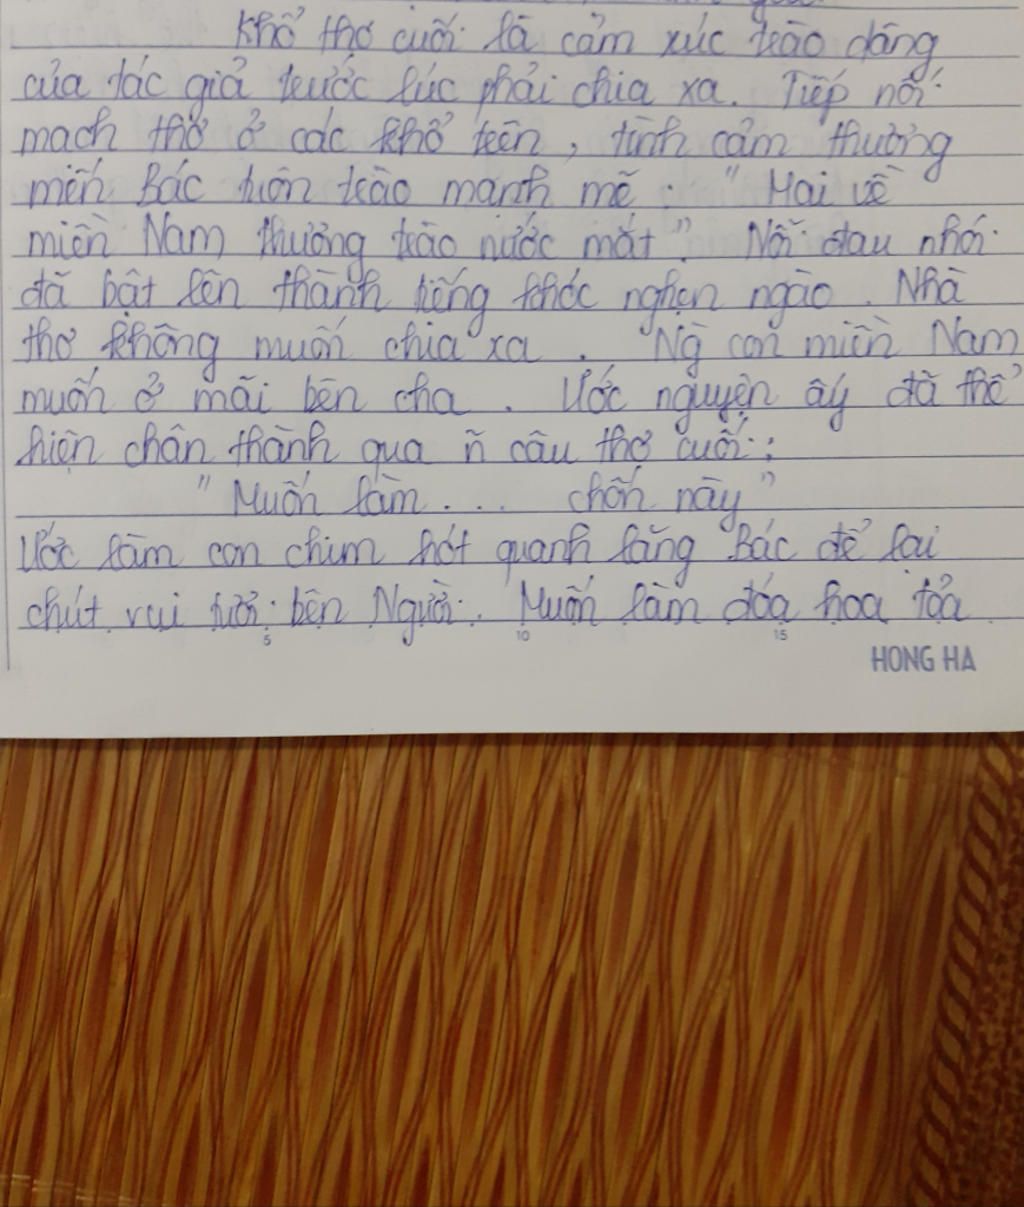 Khổ thơ cuối là cảm xúc trào dâng
của tác giả trước lúc phải chia xa. Tiếp nối
mạch thơ ở các khổ trên, tình cảm thương
mến Bác tuôn trào mạnh mẽ: "Mai về
miền Nam thương trào nước mắt". Nỗi đau nhói
đã bật lên thành tiếng khóc nghẹn ngào. Nhà
thơ không muốn chia xa. Ng con miền Nam
muốn ở mãi bên cha. Ước nguyện ấy đã thể
hiện chân thành qua ñ câu thơ cuối:
"Muốn làm.... chốn này"
Ước làm con chim hót quanh lăng Bác để lại
chút vui tươi bên Người. Muốn làm đóa hoa tỏa
5 10 15
HONG HA